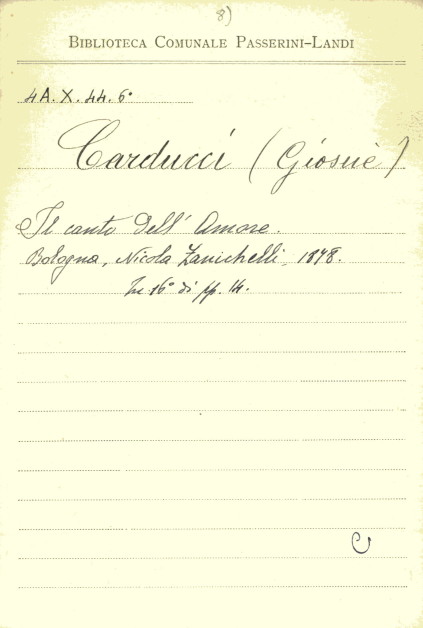 8)
BIBLIOTECA COMUNALE PASSERINI-LANDI
4A. X. 44. 6°
Carducci (Giosuè)
Il canto dell' Amore.
Bologna, Nicola Zanichelli, 1878.
In 16° di pp. 14.
C